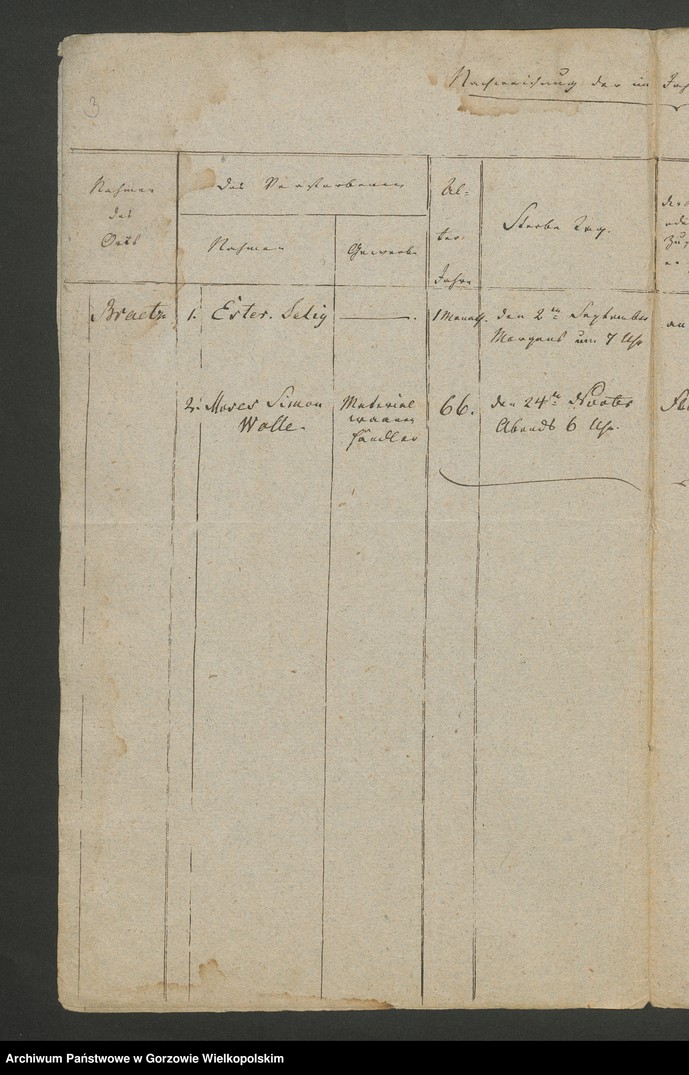 3
Nachweisung der im Jah
Nahmen
des
Orts
Des Verstorbenen
Nahmen
Gewerbe
Al-
ter.
Jahre
Sterbe Tag.
Braetz
1. Ester. Selig
1 Monath.
den 2ten September
Morgens um 7 Uhr
an
2. Moses Simon
Wolle.
Material
waaren
händler
66.
den 24ten
Abends 6 Uhr.
Archiwum Państwowe w Gorzowie Wielkopolskim